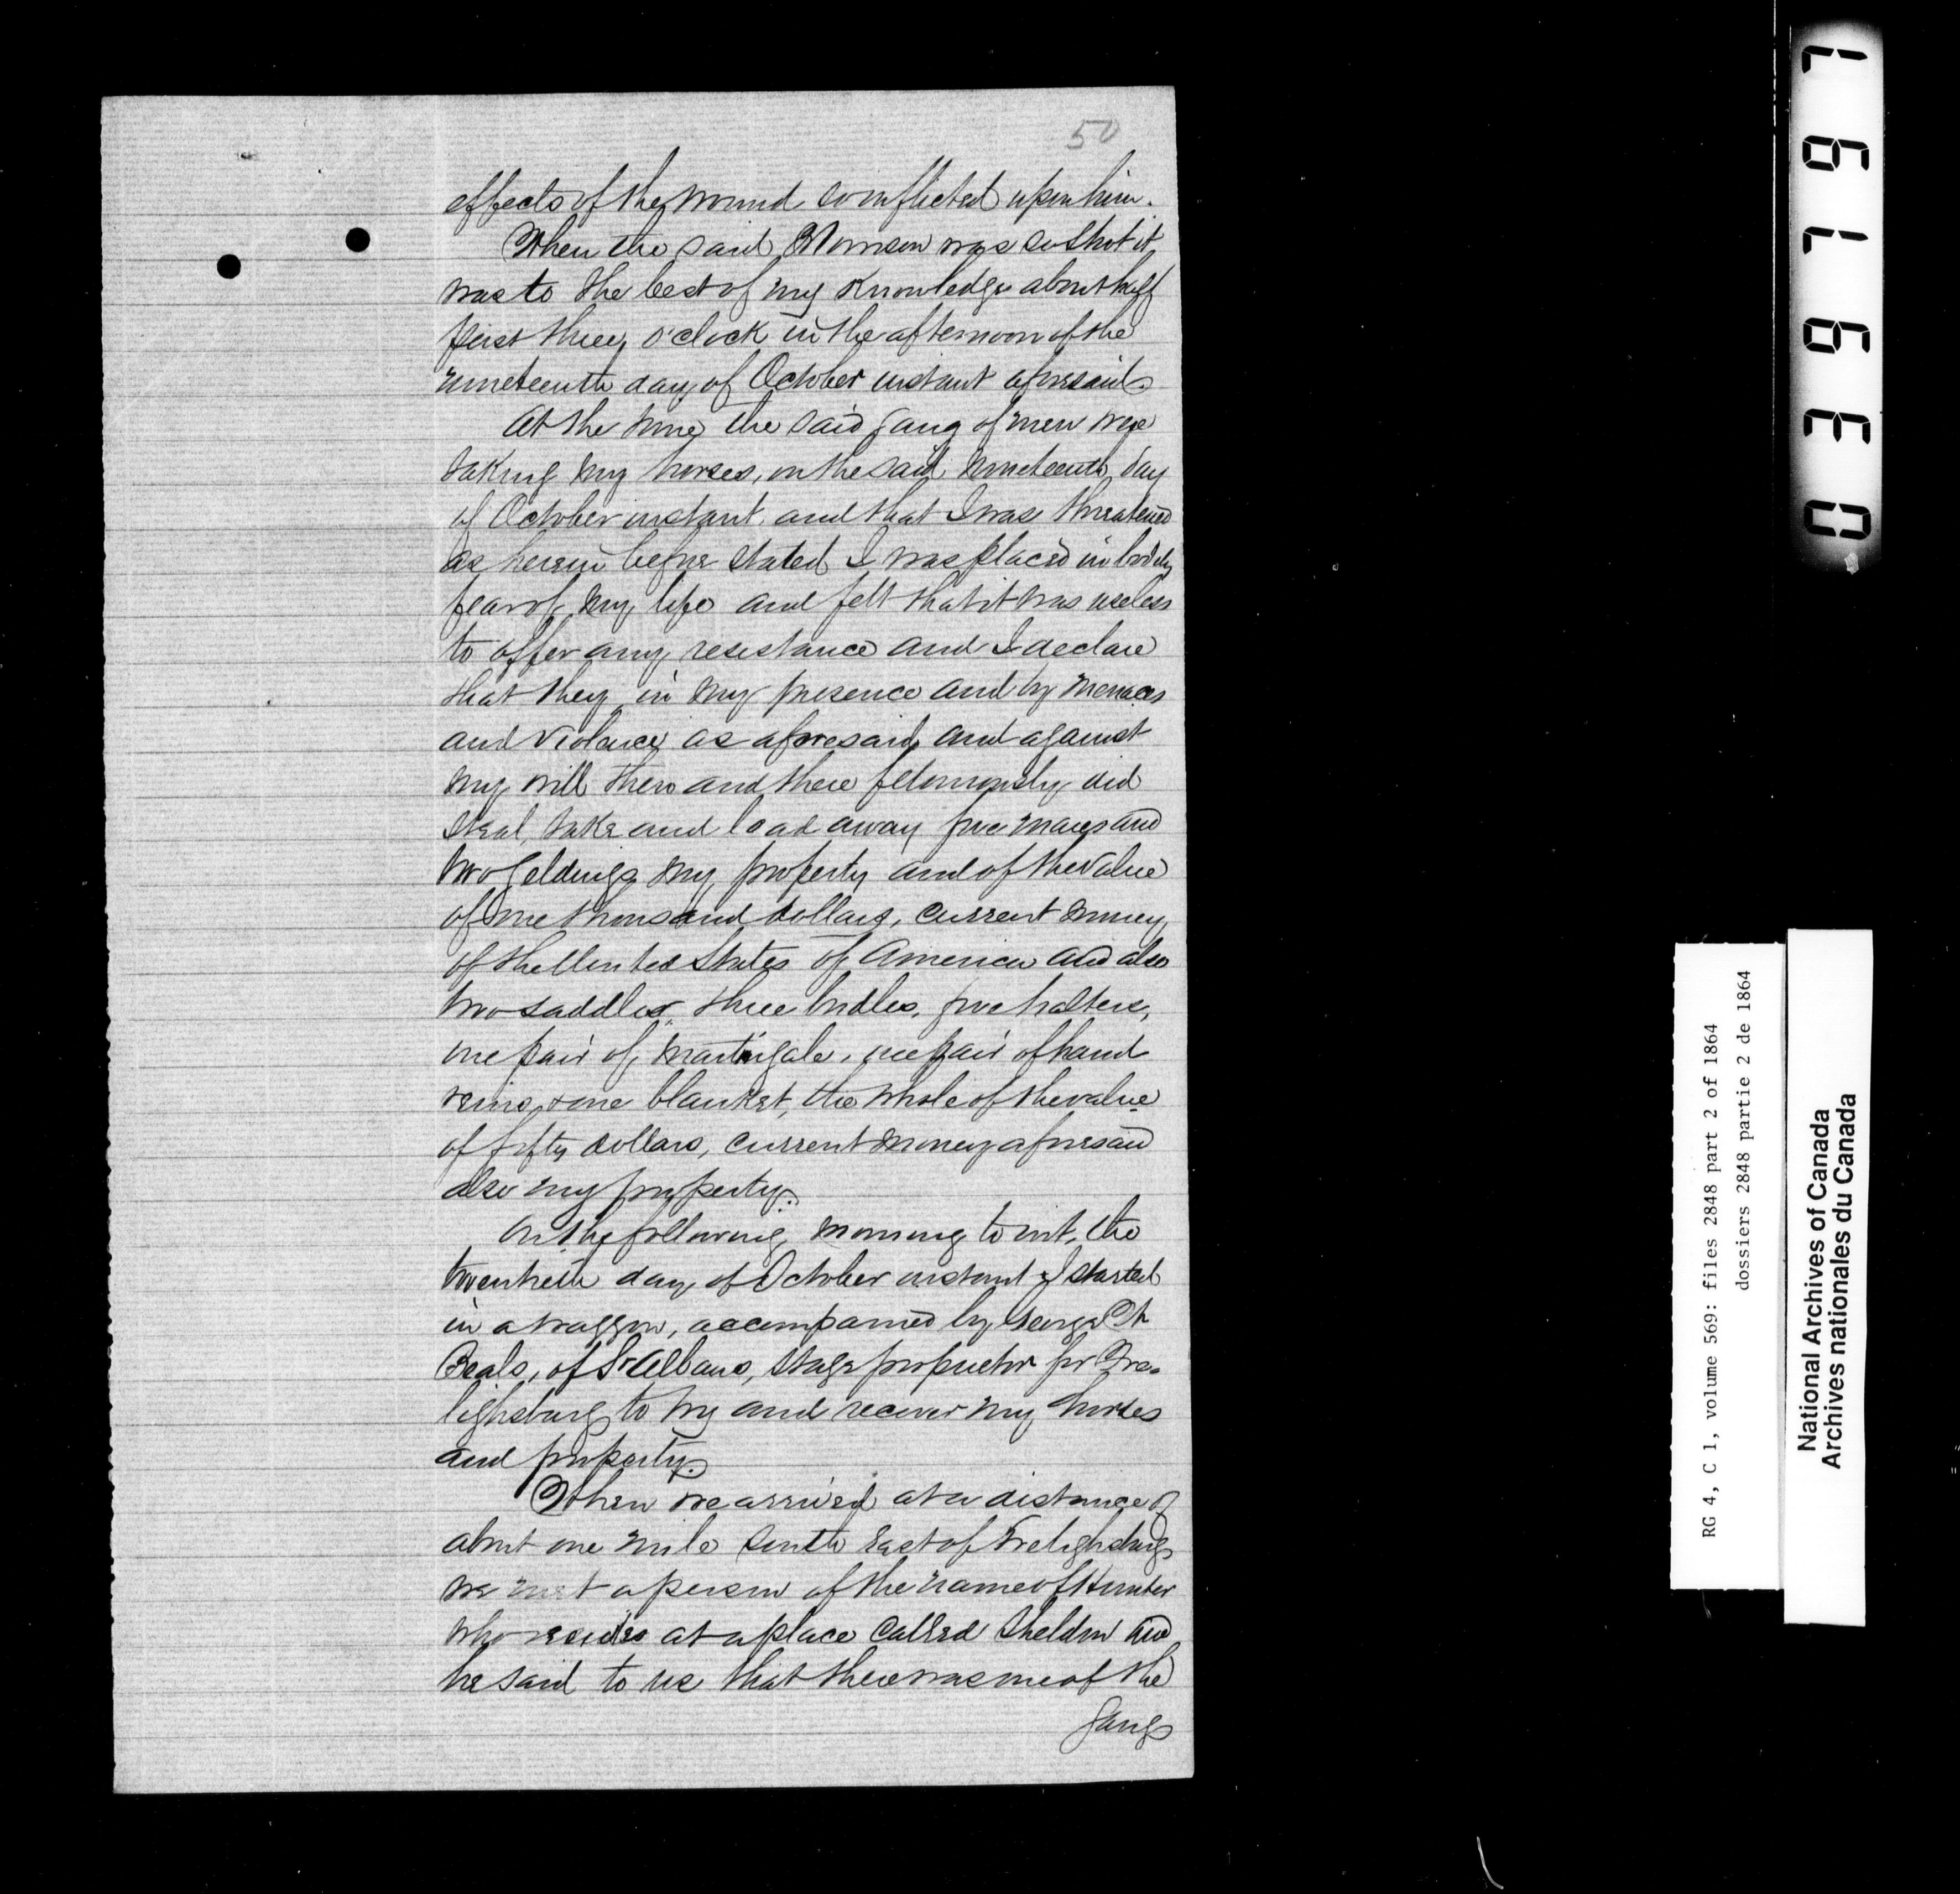 50
effects of the wound so inflicted upon him.
When the said Morrison was so shot it
was to the best of my knowledge about half
past three o'clock in the afternoon of the
nineteenth day of October instant aforesaid.
At the time the said gang of men were
taking my horses, on the said nineteenth day
of October instant, and that I was threatened
as herein before stated I was placed in bodily
fear of my life and felt that it was useless
to offer any resistance and I declare
that they in my presence and by menaces
and violence as aforesaid and against
my will then and there feloniously did
steal, take and lead away five mares and
two geldings my property and of the value
of one thousand dollars, current money
of the United States of America and also
two saddles, three bridles, five halters,
one pair of martingale, one pair of hand
reins, one blanket, the whole of the value
of fifty dollars, current money aforesaid
also my property.
On the following morning to wit, the
twentieth day of October instant I started
in a waggon, accompanied by George
Beals, of St Albans, stage proprietor for Fre-
lighsburg to try and recover my horses
and property.
When we arrived at a distance of
about one mile south east of Frelighsburg
we met a person of the name of Hunter
who resides at a place called Sheldon and
he said to us that there was one of the
gang
0 3 9 1 9 7
RG 4, C 1, volume 569: files 2848 part 2 of 1864
dossiers 2848 partie 2 de 1864
National Archives of Canada
Archives nationales du Canada